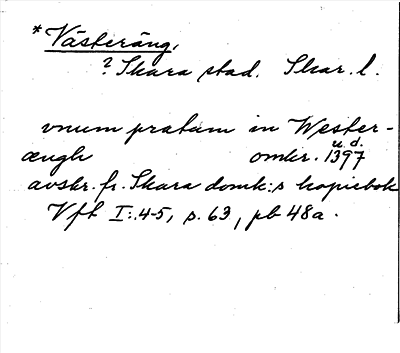 *Västeräng,
? Skara stad. Skar. l.
vnum pratum in Wester-
ængh omkr. 1397 u. d.
avskr. fr. Skara domk:s kopiebok
Vft I:4-5, s. 63, pb 48a.